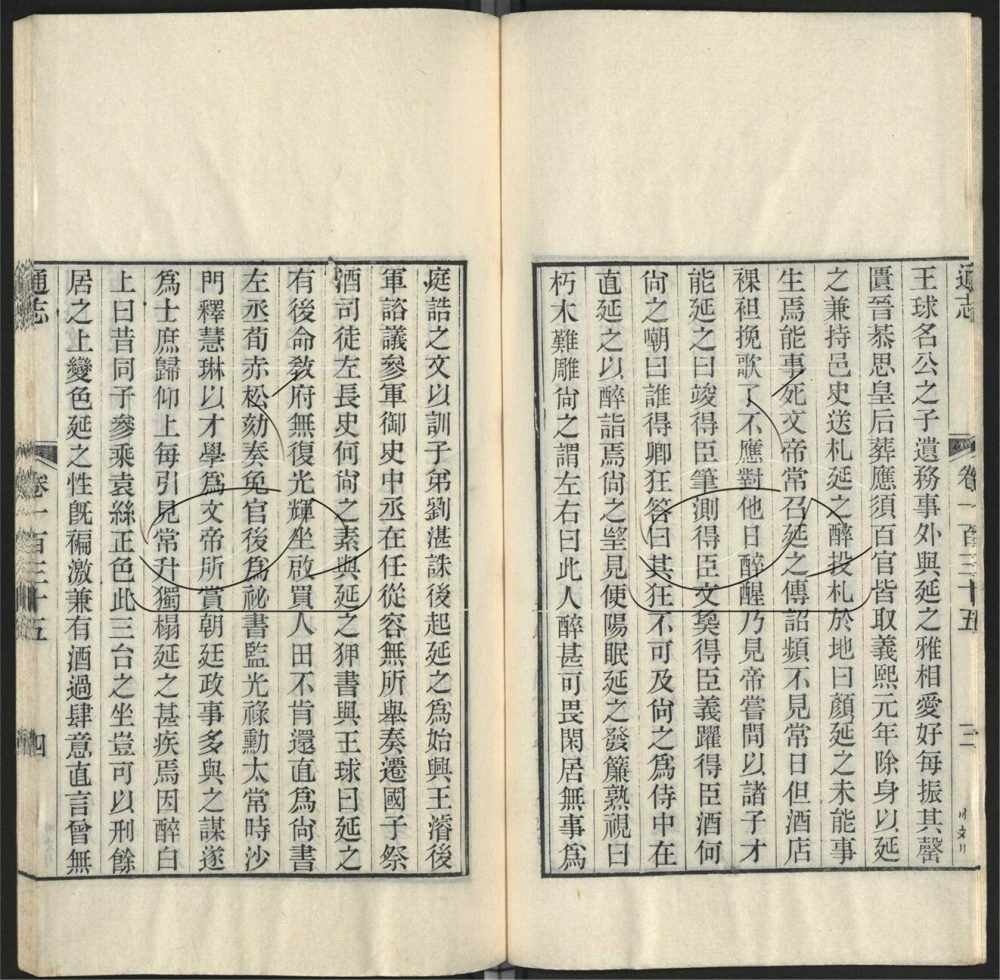 通志
卷一百三十五
二
王球名公之子遺務事外與延之雅相愛好每振其罄
匱晉恭思皇后葬應須百官皆取義熙元年除身以延
之兼持邑史送札延之醉投札於地曰顏延之未能事
生焉能事死文帝常召延之傳詔頻不見常日但酒店
裸袒挽歌了不應對他日醉醒乃見帝嘗問以諸子才
能延之曰竣得臣筆測得臣文㚟得臣義躍得臣酒何
尙之嘲曰誰得卿狂答曰其狂不可及尙之爲侍中在
直延之以醉詣焉尙之望見便陽眠延之發簾熟視曰
朽木難雕尙之謂左右曰此人醉甚可畏閑居無事爲
庭誥之文以訓子弟劉湛誅後起延之爲始興王濬後
軍諮議參軍御史中丞在任從容無所舉奏遷國子祭
酒司徒左長史何尙之素與延之狎書與王球曰延之
有後命敎府無復光輝坐啟買人田不肯還直爲尙書
左丞荀赤松劾奏免官後爲祕書監光祿勳太常時沙
門釋慧琳以才學爲文帝所賞朝廷政事多與之謀遂
爲士庶歸仰上每引見常升獨榻延之甚疾焉因醉白
上曰昔同子參乘袁絲正色此三台之坐豈可以刑餘
居之上變色延之性旣褊激兼有酒過肆意直言曾無
通志
卷一百三十五
四